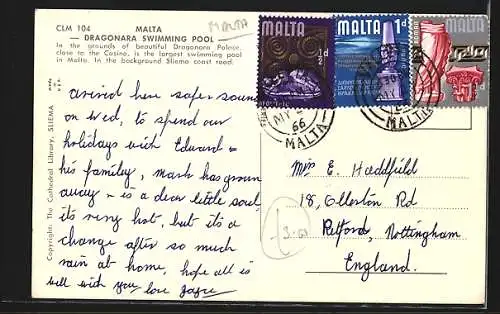 CLM 104 MALTA
— DRAGONARA SWIMMING POOL —
In the grounds of beautiful Dragonara Palace,
close to the Casino, is the largest swimming pool
in Malta. In the background Sliema coast road.
MALTA
Copyright: The Cathedral Library, SLIEMA
arrived here safer sound
on Wed, to spend our
holidays with Edward &
his family, mark has grown
away - is a dear little soul
its very hot, but it's a
change after so much
rain at home, hope all is
well with you love
MALTA ½d
MALTA 1d
MALTA
66
MALTA
MALTA
Mrs E. Haddfield
18, Olleston Rd
Retford, Nottingham
England.